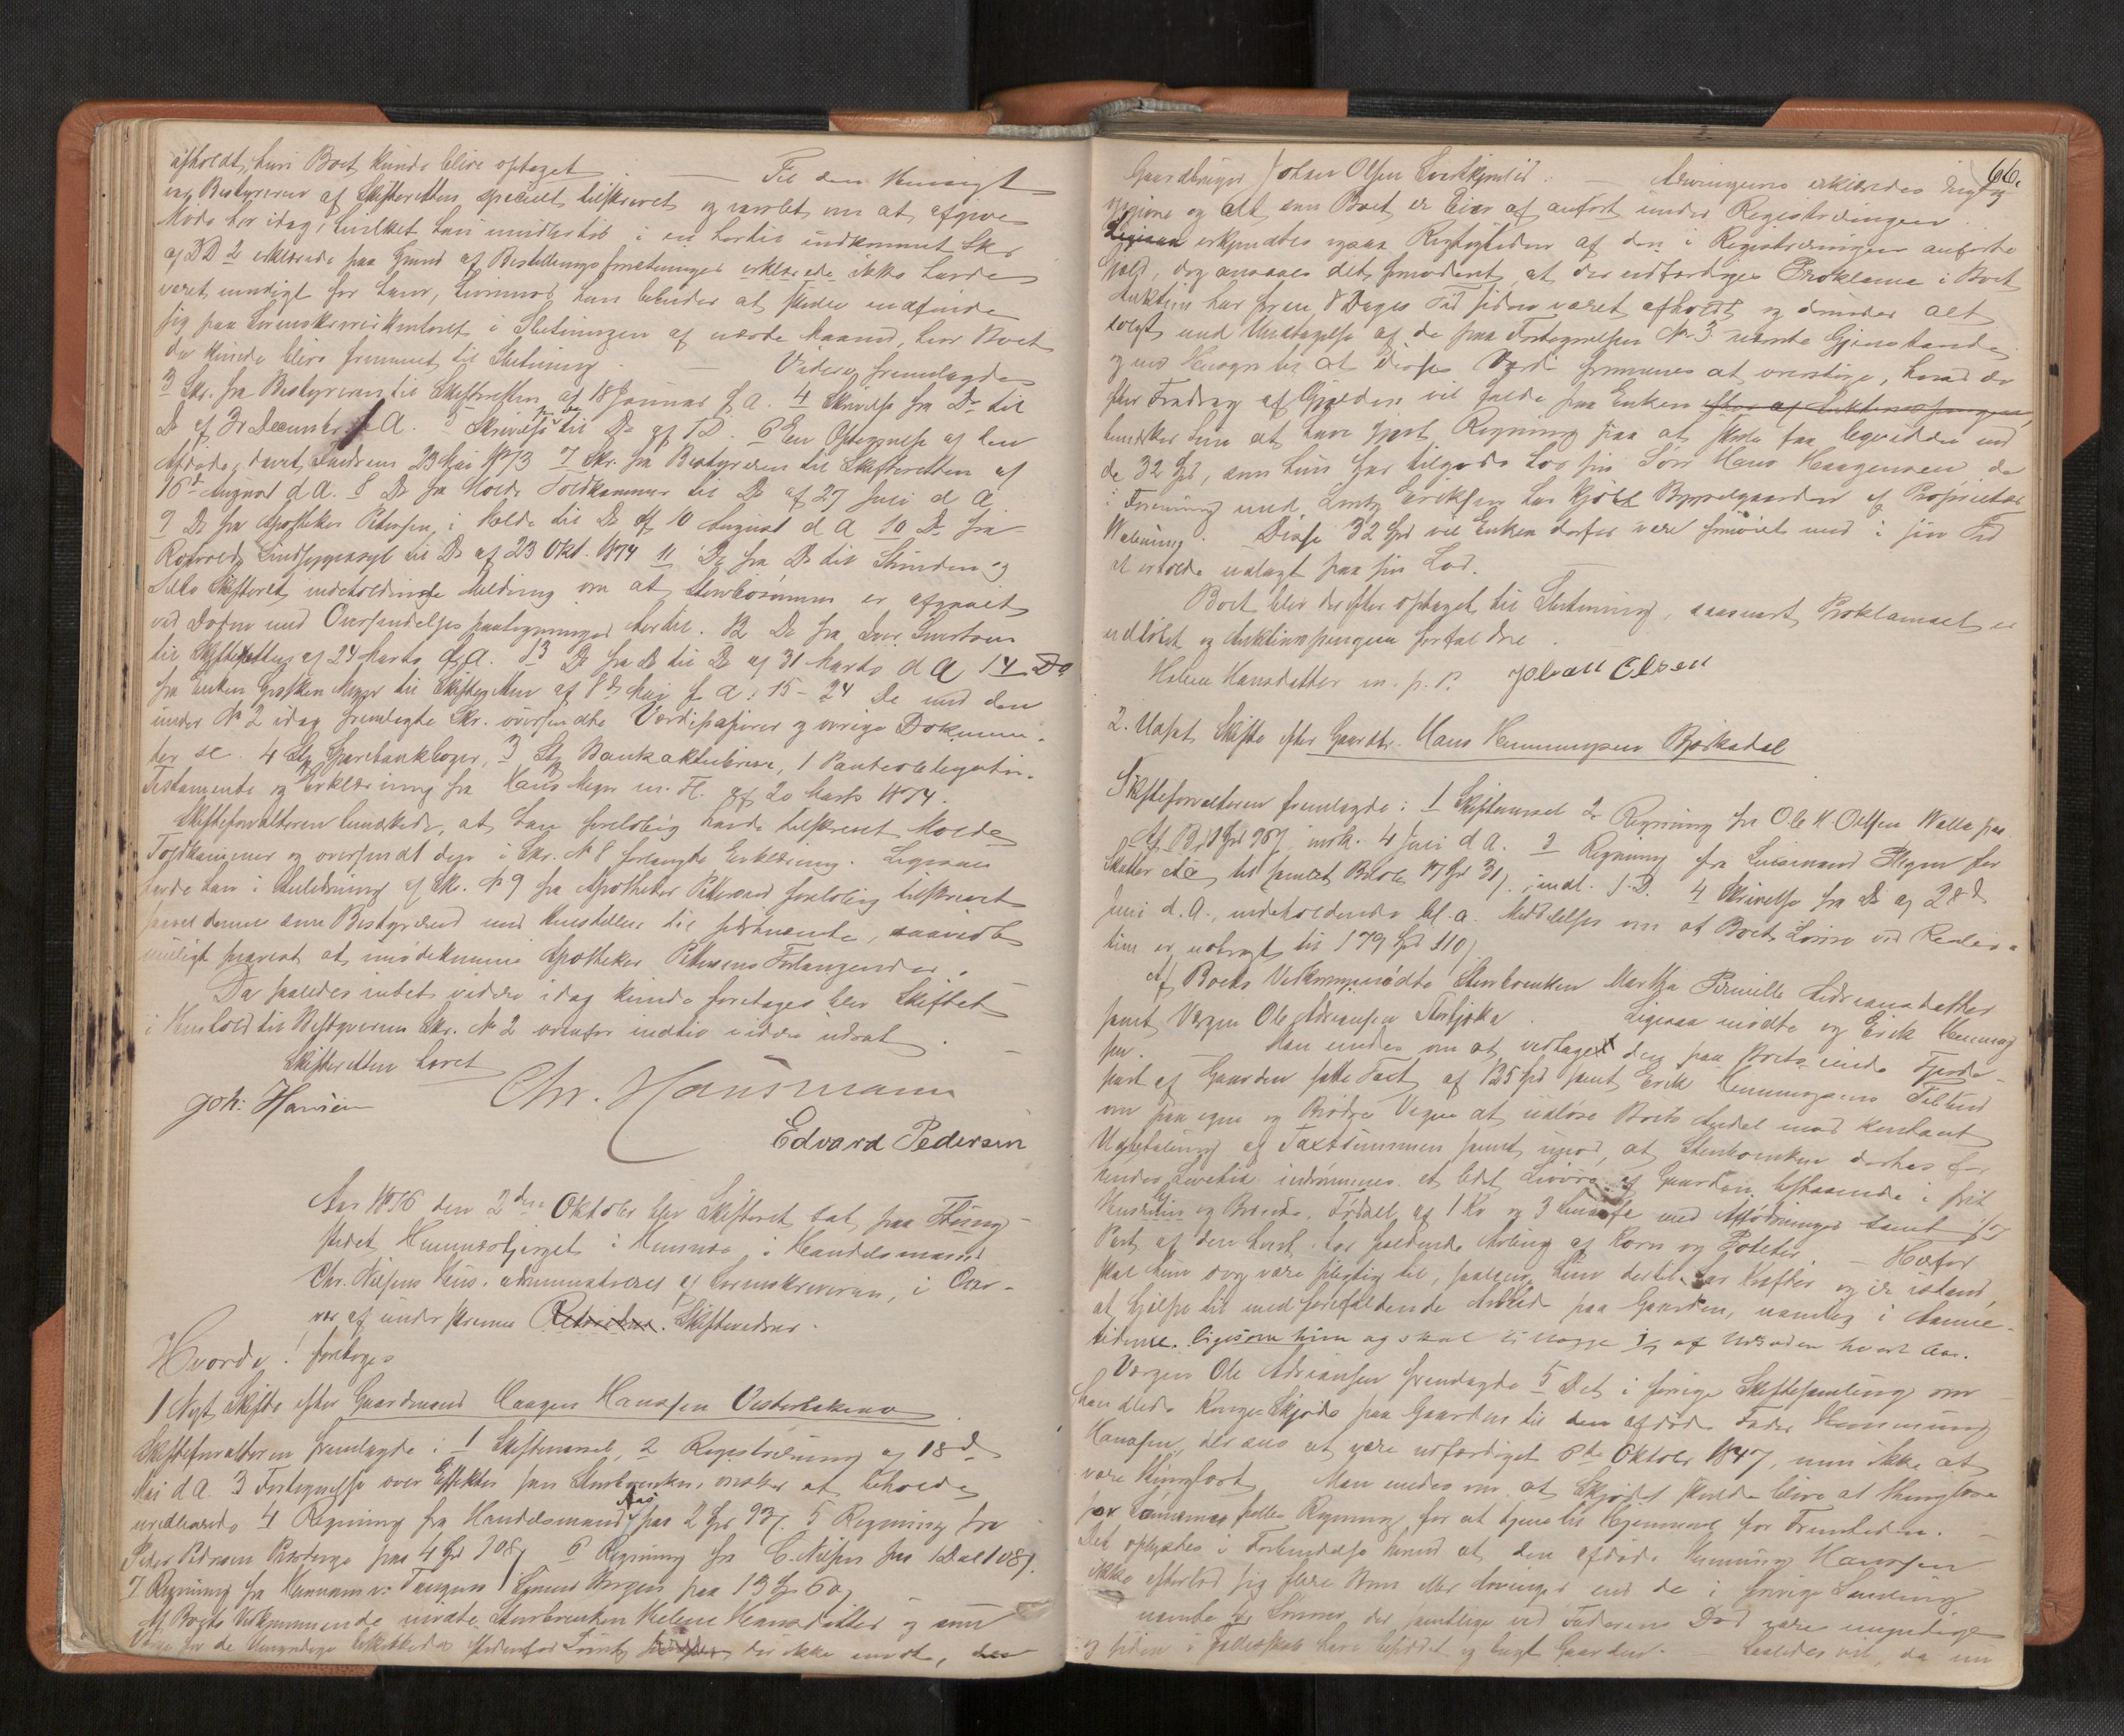 afholdt, kun Boet kunde blive optaget. — Til den Hensigt
var Bestyreren af Skifteretten specielt tilskrevet og varslet om at afgive
Møde her idag, hvilket han imidlertid i en hertil indkommet Skr
af DD 2 erklærede paa Grund af Bestillingsforretninger erklærede ikke havde
været muligt for ham, hvorimod han bebuder at skulle indfinde
sig paa Sorenskriverkontoret i Slutningen af næste Maaned, hvor Boet
da kunde blive fremmet til Slutning. — Videre fremlagdes
3 Skr. fra Bestyreren til Skifteretten af 18 Januar f.A. 4 Skrivelse fra Do til
Do af 31 December f A. 5 Skrivelse til Do af SD. 6 En Opregnelse af den
Afdøde, datert 23 Mai 1873 7 Skr. fra Bestyreren til Skifteretten af
16de August d A. 8 Do fra Molde Toldkammer til Do af 27 Juli d A
9 Do fra Apotheker Petersen i Molde til Do af 10 August d A 10 Do fra
Rotvolds Sindssygeasyl til Do af 23 Okt. 1874 11 Do fra Do til
Skifteret indeholdende Melding om at er afgaaet
ved Døden med Oversendelses paategninger hertil. 12 Do fra
til Skifteretten af 24 Marts d.A. 13 Do fra Do til Do af 31 Marts d A 14 Do
fra Enken Meyer til Skifteretten af 8de Mai f A: 15–24 De med den
under No 2 idag fremlagte Skr. oversendte Værdipapirer og øvrige Dokumen-
ter se. 4 Stk Sparebankbøger, 3 Stk Bankaktiebreve, 1 Panteobligation.
Testamente og Erklæring fra Hans Meyer m. Fl. af 20 Marts 1874.
Skifteforvalteren bemærkede, at han foreløbig havde tilskrevet Molde
Toldkammer og oversendt den i Skr. No 8 forlangte Erklæring. Ligesaa
havde han i Anledning af Skr. No 9 fra Apotheker Petersen foreløbig tilskrevet
saavel denne som Bestyreren med Henstillen til sidstnævnte, saavidt
muligt snarest at imødekomme Apotheker Petersens Forlangender.
Da saaledes intet videre idag kunde foretages blev Skiftet
i Henhold til Bestyrerens Skr. No 2 ovenfor indtil videre udsat. —
Skifteretten hævet
Joh: Hansen Chr. Hausmann
Edvard Pedersen
Aar 1876 den 2den Oktober blev Skifteret sat paa Thing-
stedet Hemnæsbjerget i Hemnæs i Handelsmand
Chr. Nilsens Hus. administreret af Sorenskriveren, i Over-
vær af underskrevne Retsvidner. Skiftevidner.
Hvorda! foretoges
1 Nyt Skifte efter Gaardmand Haagen Hanssen
Skifteforvalteren fremlagde: 1 Skiftevarsel, 2 Registrering af 18de
Mai d A. 3 Fortegnelse over Effekter som Stervboenken ønsker at beholde
uvedkommende 4 Regning fra Handelsmand Aas paa 2 Spd 93 ß. 5 Regning fra
Peder Pedersen paa 4 Spd 108 ß 6 Regning fra C. Nilsen paa 1 Dal 108 ß.
7 Regning fra Hermann v: Tangens i Bergen paa 13 Sp 60 ß
Af Boets Vedkommende mødte Stervboenken Helene Hansdatter og som
Værge for de Umyndige beskikkedes istedenfor der ikke mødte, den
66.
Gaardbruger Johan Olsen — Arvingerne erklæredes rigtig
og Alt som Boet er Eier af anført under Registreringen.
Ligesaa erkjendtes ogsaa Rigtigheden af den i Registreringen anførte
Gjæld, dog ansaaes det fornødent, at der udfærdiges Proklama i Boet
Auktion har for en 8 Dages Tid siden været afholdt og derunder alt
solgt med Undtagelse af de paa Fortegnelsen No 3 nævnte Gjenstande
og med Hensyn til at disses Værdi formenes at overstige, hvad der
efter Fradrag af Gjælden vil falde paa Enken
bemærker hun at have gjort Regning paa at skulle faa ligeviddu med
de 32 Spd, som hun har tilgode hos sin Søn Hans Haagensen der
i Forening med Eriksen har kjøbt Bygselgaarden af Proprietær
Disse 32 Spd vil Enken derfor være fornøiet med i sin Tid
at erholde udlagt paa sin Lod. —
Boet blev derefter optaget til Slutning, saasnart Proklamaet er
udløbet og Auktionspengene forfaldne.
Helene Hansdatter m. p. P. Johan Olsen
2. Udsat Skifte efter Gaardbr. Hans Henningsen Bjerkadal
Skifteforvalteren fremlagde: 1 Skiftevarsel 2 Regning fra Ole H. Olsen Valla paa
2 Spd 96 ß, mrk. 4 Juni d A. 3 Regning fra Lensmand Hegen for
Skatter etc til samlet Beløb 17 Spd 31 ß, indl. S.D. 4 Skrivelse fra Do af 28de
Juni d.A., indeholdende bl.a. Meddelelse om at Boets Løsøre ved Reali-
tion er udbragt til 179 Spd 110 ß
Af Boets Vedkommende mødte Stervboenken Martha Pernille Adriansdatter
samt Værgen Ole Adriansen Ligesaa mødte og Erik Henning-
sen. — Man enedes om at vedtage den paa Boets eiende Fjerde-
part af Gaarden satte Taxt af 125 Spd samt Erik Henningsens Tilbud
om paa egne og Brødres Vegne at indløse Boets Andel mod kontant
Udbetaling af Taxtsummen samt imod, at Stervboenken derhos for
hendes Levetid indrømmes et lidet Livøre af Gaarden bestaaende i frit
Husrum og Brænde, Fødsel af 1 Ko og 3 Smaafe med Afføding samt
Part af den hvert Aar faldende Avling af Korn og Poteter — Herfor
skal hun dog være pligtig til, saalænge hun dertil har Kræfter og er istand,
at hjælpe til med forefaldende Arbeide paa Gaarden, nemlig i Aanne-
tiderne. ligesom hun og skal af Udsæden hvert Aar.
Værgen Ole Adriansen fremlagde 5 Det i forrige Skiftesamling om-
handlede Kongeskjøde paa Gaarden til den afdøde Fader Henning
Hanssen, der saaes at være udfærdiget 8de Oktober 1847, men ikke at
være thinglæst. Man enedes om at Skjødet skulde blive at thinglæse
for Sønnernes fælles Regning for at tjene til Hjemmel for Fremtiden. —
Det oplystes i Forbindelse hermed at den afdøde Henning Hanssen
ikke efterlod sig flere Børn eller Arvinger end de i forrige Samling
nævnte Sønner, der samtlige ved Faderens Død vare umyndige
og siden i Fællesskab have besiddet og brugt Gaarden. — Saaledes vil, da nu